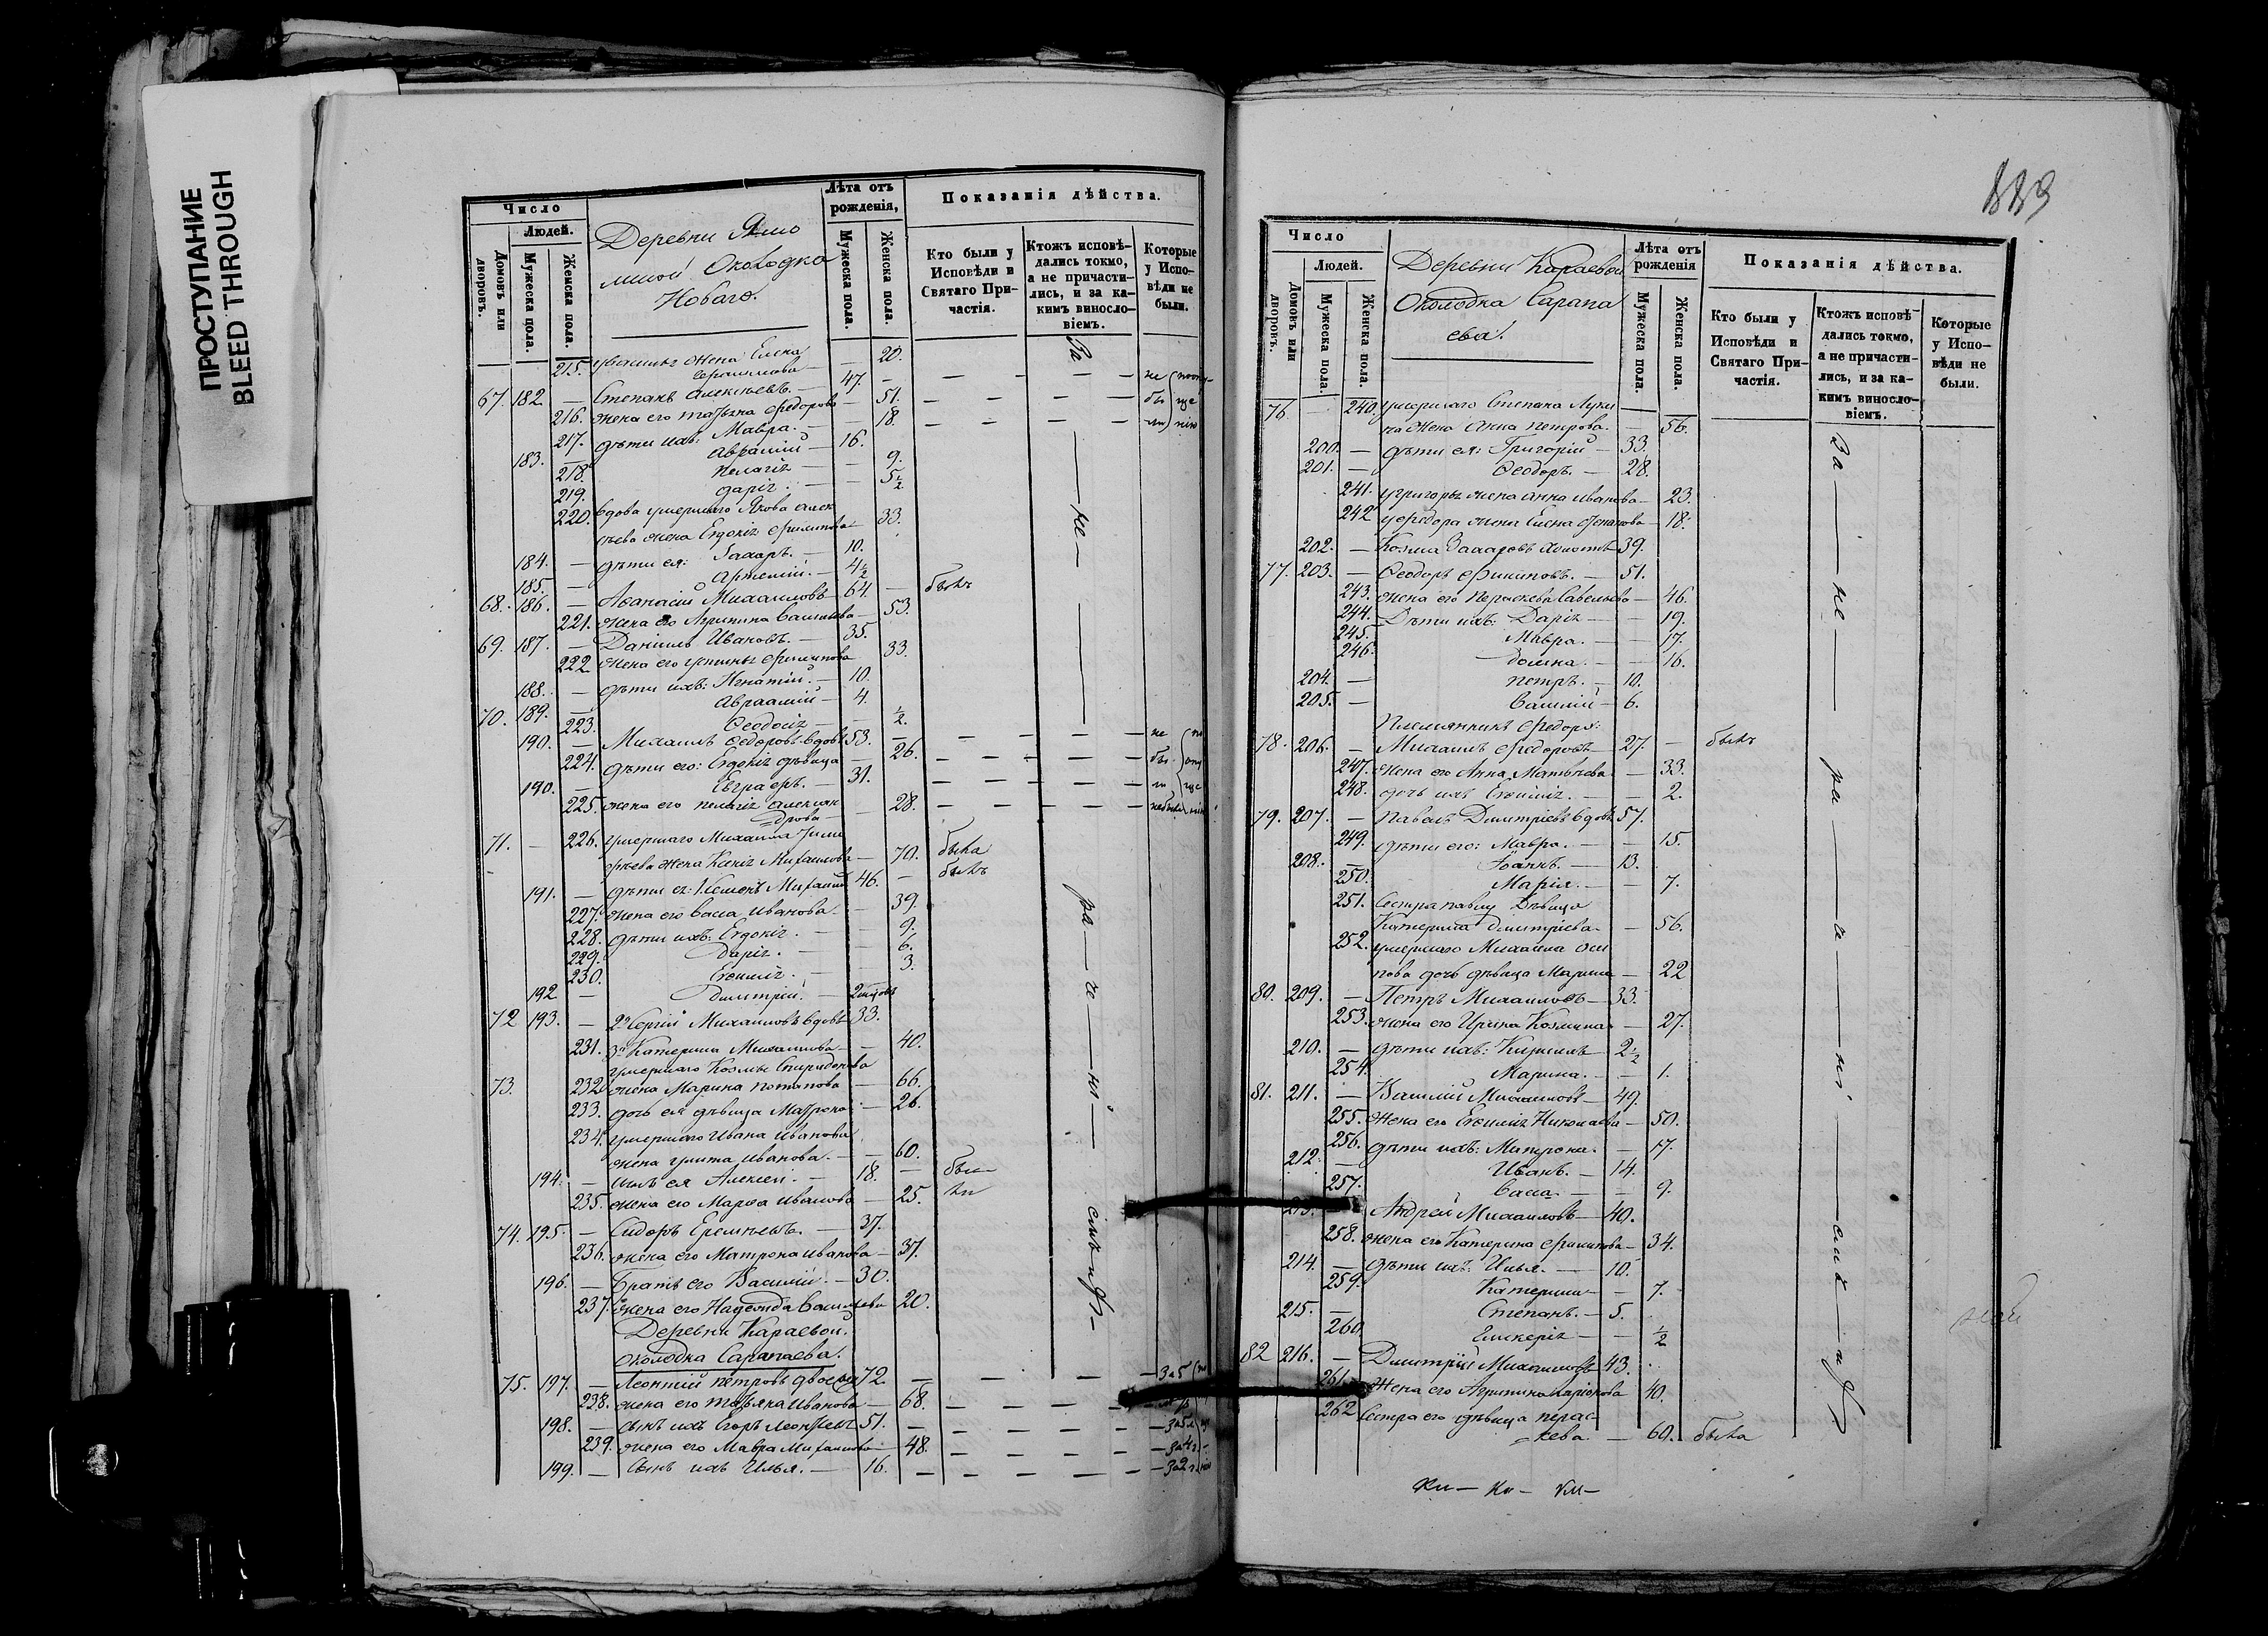 ПРОСТУПАНИЕ
BLEED THROUGH
Число
Людей.
Домовъ или дворовъ.
Мужеска пола.
Женска пола.
Деревни Ямо
ской Околодка
Новаго.
Лѣта отъ рожденія,
Мужеска пола.
Женска пола.
Показанія дѣйства.
Кто были у Исповѣди и Святаго Причастія.
Ктожъ исповѣдались токмо, а не причастились, и за какимъ винословіемъ.
Которые у Исповѣди не были.
215. жена Елена — 20.
67. 182. — Степанъ Алексѣевъ. — 47. —
216. жена его Татьяна Ѳедорова — 51.
217. дѣти ихъ: Мавра. — 18.
183. — Авраамій — 16.
218. Пелагія — 9.
219. Дарія. — 5½
220. вдова умершаго Якова Алек
сѣева жена Евдокія Филипова 33.
184. — дѣти ея: Захаръ. — 10.
185. — Артемій. — 4½
68. 186. — Аѳанасій Михаиловъ 64. — былъ
221. жена его Агрипина Васильева — 53.
69. 187. — Даніилъ Ивановъ. — 35.
222. жена его Устинья Филипова 33.
188. — дѣти ихъ: Игнатій. — 10.
189. — Авраамій — 4.
70. 223. Ѳеодосія — ½
190. — Михаилъ Ѳедоровъ вдовъ 53. —
224. дѣти его: Евдокія дѣвица — 26.
190. — Евграфъ. — 31.
225. жена его Пелагія Алексан
дрова — 28.
71. — 226. умершаго Михаила Тимо
фѣева жена Ксенія Михаилова — 70. была
191. — дѣти ея: Симеонъ Михаиловъ 46. — былъ
227. жена его Васса Иванова. — 39.
228. дѣти ихъ: Евдокія. — 9.
229. Дарія. — 6.
230. Евѳимія. — 3.
192 — Димитрій. —
72 193. — 2й Сергій Михаиловъ вдовъ 33.
231. 3я Катерина Михаилова — 40.
умершаго Козьмы Спиридонова
73. 232. жена Марина Потапова — 66.
233. дочь ея дѣвица Матрона — 26.
234. умершаго Ивана Иванова
жена Улита Иванова. — 60.
194. — сынъ ея Алексѣй. — 18. — бы—
235. жена его Марѳа Иванова — 25. ли
74. 195. — Сидоръ Еремѣевъ. — 37.
236. жена его Матрона Иванова — 37.
196. — Братъ его Василій. — 30.
237. жена его Надежда Васильева 20.
Деревни Караевой.
околодка Сарапаева.
75. 197. — Леонтій Петровъ 72. —
238. жена его Татьяна Иванова — 68.
198. — сынъ ихъ Егоръ Леонтьевъ 51.
239. жена его Мавра Михаилова — 48.
199. — Сынъ ихъ Илья. — 16.
За — не — ра — че — ні —
889
Число
Людей.
Домовъ или дворовъ.
Мужеска пола.
Женска пола.
Деревни Караевой
Околодка Сарапа
ева.
Лѣта отъ рожденія
Мужеска пола.
Женска пола.
Показанія дѣйства.
Кто были у Исповѣди и Святаго Причастія.
Ктожъ исповѣдались токмо, а не причастились, и за какимъ винословіемъ.
Которые у Исповѣди не были.
76. 240. умершаго Степана Луки
на жена Анна Петрова. — 56.
200. — дѣти ея: Григорій — 33.
201. — Ѳеодоръ. — 28.
241. у Григорья жена Анна Иванова — 23.
242 у Ѳедора жена Елена — 18.
202. — Козма Захаровъ холостъ 39.
77. 203. — Ѳеодоръ Филиповъ. — 51.
243. жена его Параскева Савельева — 46.
244. Дѣти ихъ: Дарія — 19.
245. Мавра. — 17.
246. Домна. — 16.
204. — Петръ. — 10.
205. — Василій — 6.
Племянникъ Ѳедора:
78. 206. — Михаилъ Ѳедоровъ — 27. — былъ
247. жена его Анна Матвѣева — 33.
248. дочь ихъ Евѳимія. — 2.
79. 207. — Павелъ Димитріевъ вдовъ 57.
249. дѣти его: Мавра. — 15.
208. — Іоаннъ. — 13.
250. Марія. — 7.
251. Сестра Павлу Дѣвица
Катерина Димитріева — 56.
252. умершаго Михаила Оси
пова дочь дѣвица Марина — 22
80. 209. — Петръ Михаиловъ — 33.
253. жена его Ирина Козмина — 27.
210. — дѣти ихъ: Кирилъ 2½
254. Марина. — 1.
81. 211. — Василій Михаиловъ — 49.
255. жена его Евѳимія Николаева — 50.
256. дѣти ихъ: Матрона. — 17.
212. — Иванъ. — 14.
257. Васса. — 9.
213. — Андрей Михаиловъ — 40.
258. жена его Катерина Филипова — 34.
214. — дѣти ихъ: Илья. — 10.
259. Катерина — 7.
215. — Степанъ. — 5.
260. Гликерія — ½
82 216. — Димитрій Михаиловъ 43.
261. жена его Агрипина Ларіонова 40.
262 Сестра его дѣвица Парас
кева. — 60. была
За — не — ра — че — ні —